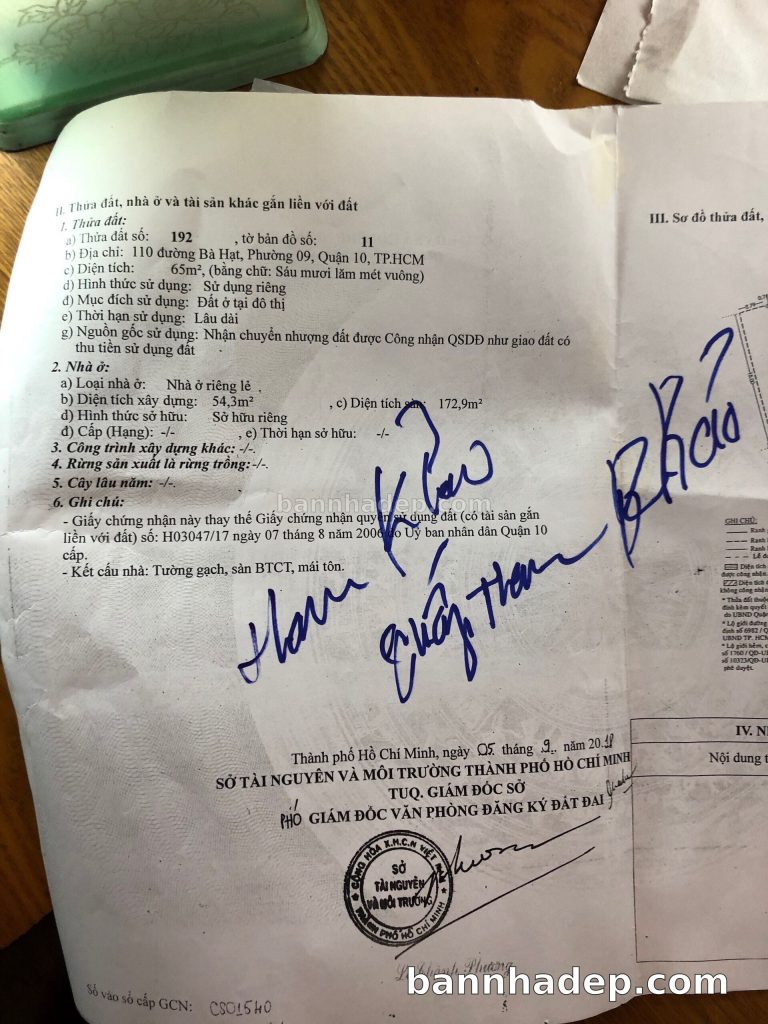 II. Thửa đất, nhà ở và tài sản khác gắn liền với đất
1. Thửa đất:
a) Thửa đất số: 192 , tờ bản đồ số: 11
b) Địa chỉ: 110 đường Bà Hạt, Phường 09, Quận 10, TP.HCM
c) Diện tích: 65m², (bằng chữ: Sáu mươi lăm mét vuông)
d) Hình thức sử dụng: Sử dụng riêng
đ) Mục đích sử dụng: Đất ở tại đô thị
e) Thời hạn sử dụng: Lâu dài
g) Nguồn gốc sử dụng: Nhận chuyển nhượng đất được Công nhận QSDĐ như giao đất có
thu tiền sử dụng đất
2. Nhà ở:
a) Loại nhà ở: Nhà ở riêng lẻ .
b) Diện tích xây dựng: 54,3m² , c) Diện tích 172,9m²
d) Hình thức sở hữu: Sở hữu riêng
đ) Cấp (Hạng): -/- , e) Thời hạn sở hữu: -/-
3. Công trình xây dựng khác: -/-.
4. Rừng sản xuất là rừng trồng:-/-.
5. Cây lâu năm: -/-.
6. Ghi chú:
bannhadep.com
- Giấy chứng nhận này thay thế Giấy chứng nhận quyền sử dụng đất (có tài sản gắn
liền với đất) số: H03047/17 ngày 07 tháng 8 năm 2006 do Uỷ ban nhân dân Quận 10
cấp.
- Kết cấu nhà: Tường gạch, sàn BTCT, mái tôn.
Tham Khảo
Tham Khảo
Thành phố Hồ Chí Minh, ngày 05 tháng 9 năm 2018
SỞ TÀI NGUYÊN VÀ MÔI TRƯỜNG THÀNH PHỐ HỒ CHÍ MINH
TUQ. GIÁM ĐỐC SỞ
PHÓ GIÁM ĐỐC VĂN PHÒNG ĐĂNG KÝ ĐẤT ĐAI
CỘNG HÒA X.H.C.N VIỆT NAM
SỞ
TÀI NGUYÊN
VÀ MÔI TRƯỜNG
THÀNH PHỐ HỒ CHÍ MINH
Số vào sổ cấp GCN: CS01540
III. Sơ đồ thửa đất,
GHI CHÚ:
Ranh
Ranh
Ranh
Diện tích
được công nhận.
Diện tích
không công nhận
* Thửa đất thuộc
đính kèm quyết
do UBND Quận
* Lộ giới đường
định số 6982 / Q
UBND TP. HCM
* Lộ giới hẻm, c
số 1760 / QĐ-UB
số 10323/QĐ-UB
phê duyệt.
IV. N
Nội dung t
bannhadep.com